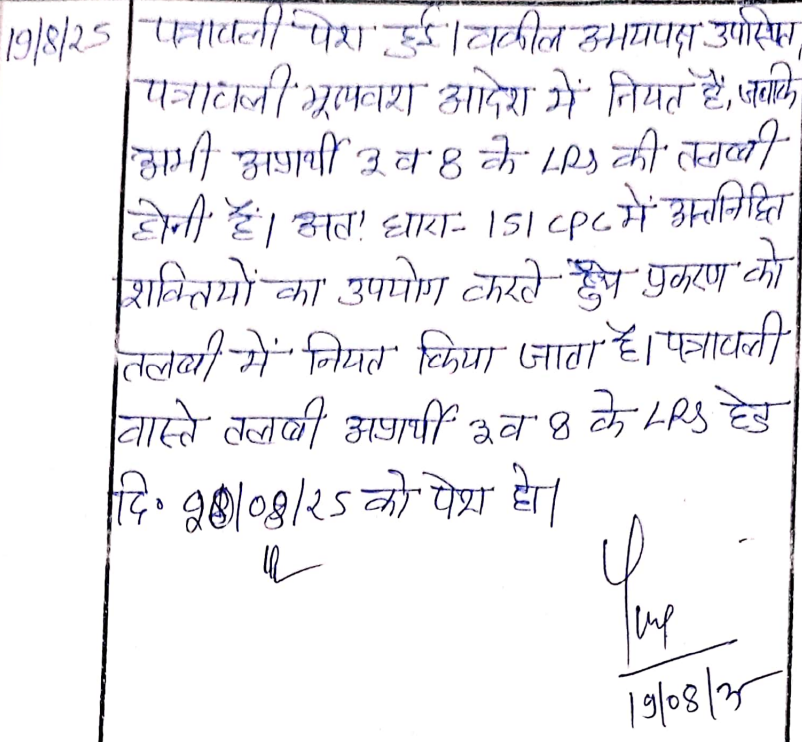 19/8/25 पत्रावली पेश हुई। वकील उभयपक्ष उपस्थित,
पत्रावली भूलवश आदेश में नियत हैं, जबकि
अभी अप्रार्थी 3 व 8 के LRS की तलबी
होनी हैं। अतः धारा- 151 CPC में अन्तर्निहित
शक्तियों का उपयोग करते हुए प्रकरण को
तलबी में नियत किया जाता है। पत्रावली
वास्ते तलबी अप्रार्थी 3 व 8 के LRS हेतु
दि० /08/25 को पेश हो।
19/08/25